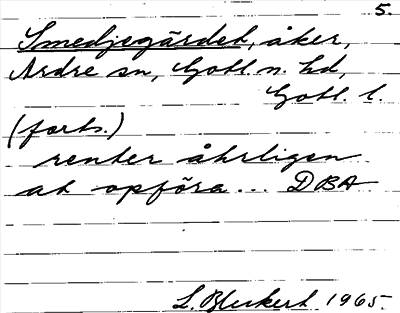 5.
Smedjegärdet, åker,
Ardre sn, Gotl. n. hd,
Gotl. l.
(forts.)
renter åhrligen
at opföra ... DBA
L. Bleckert 1965.